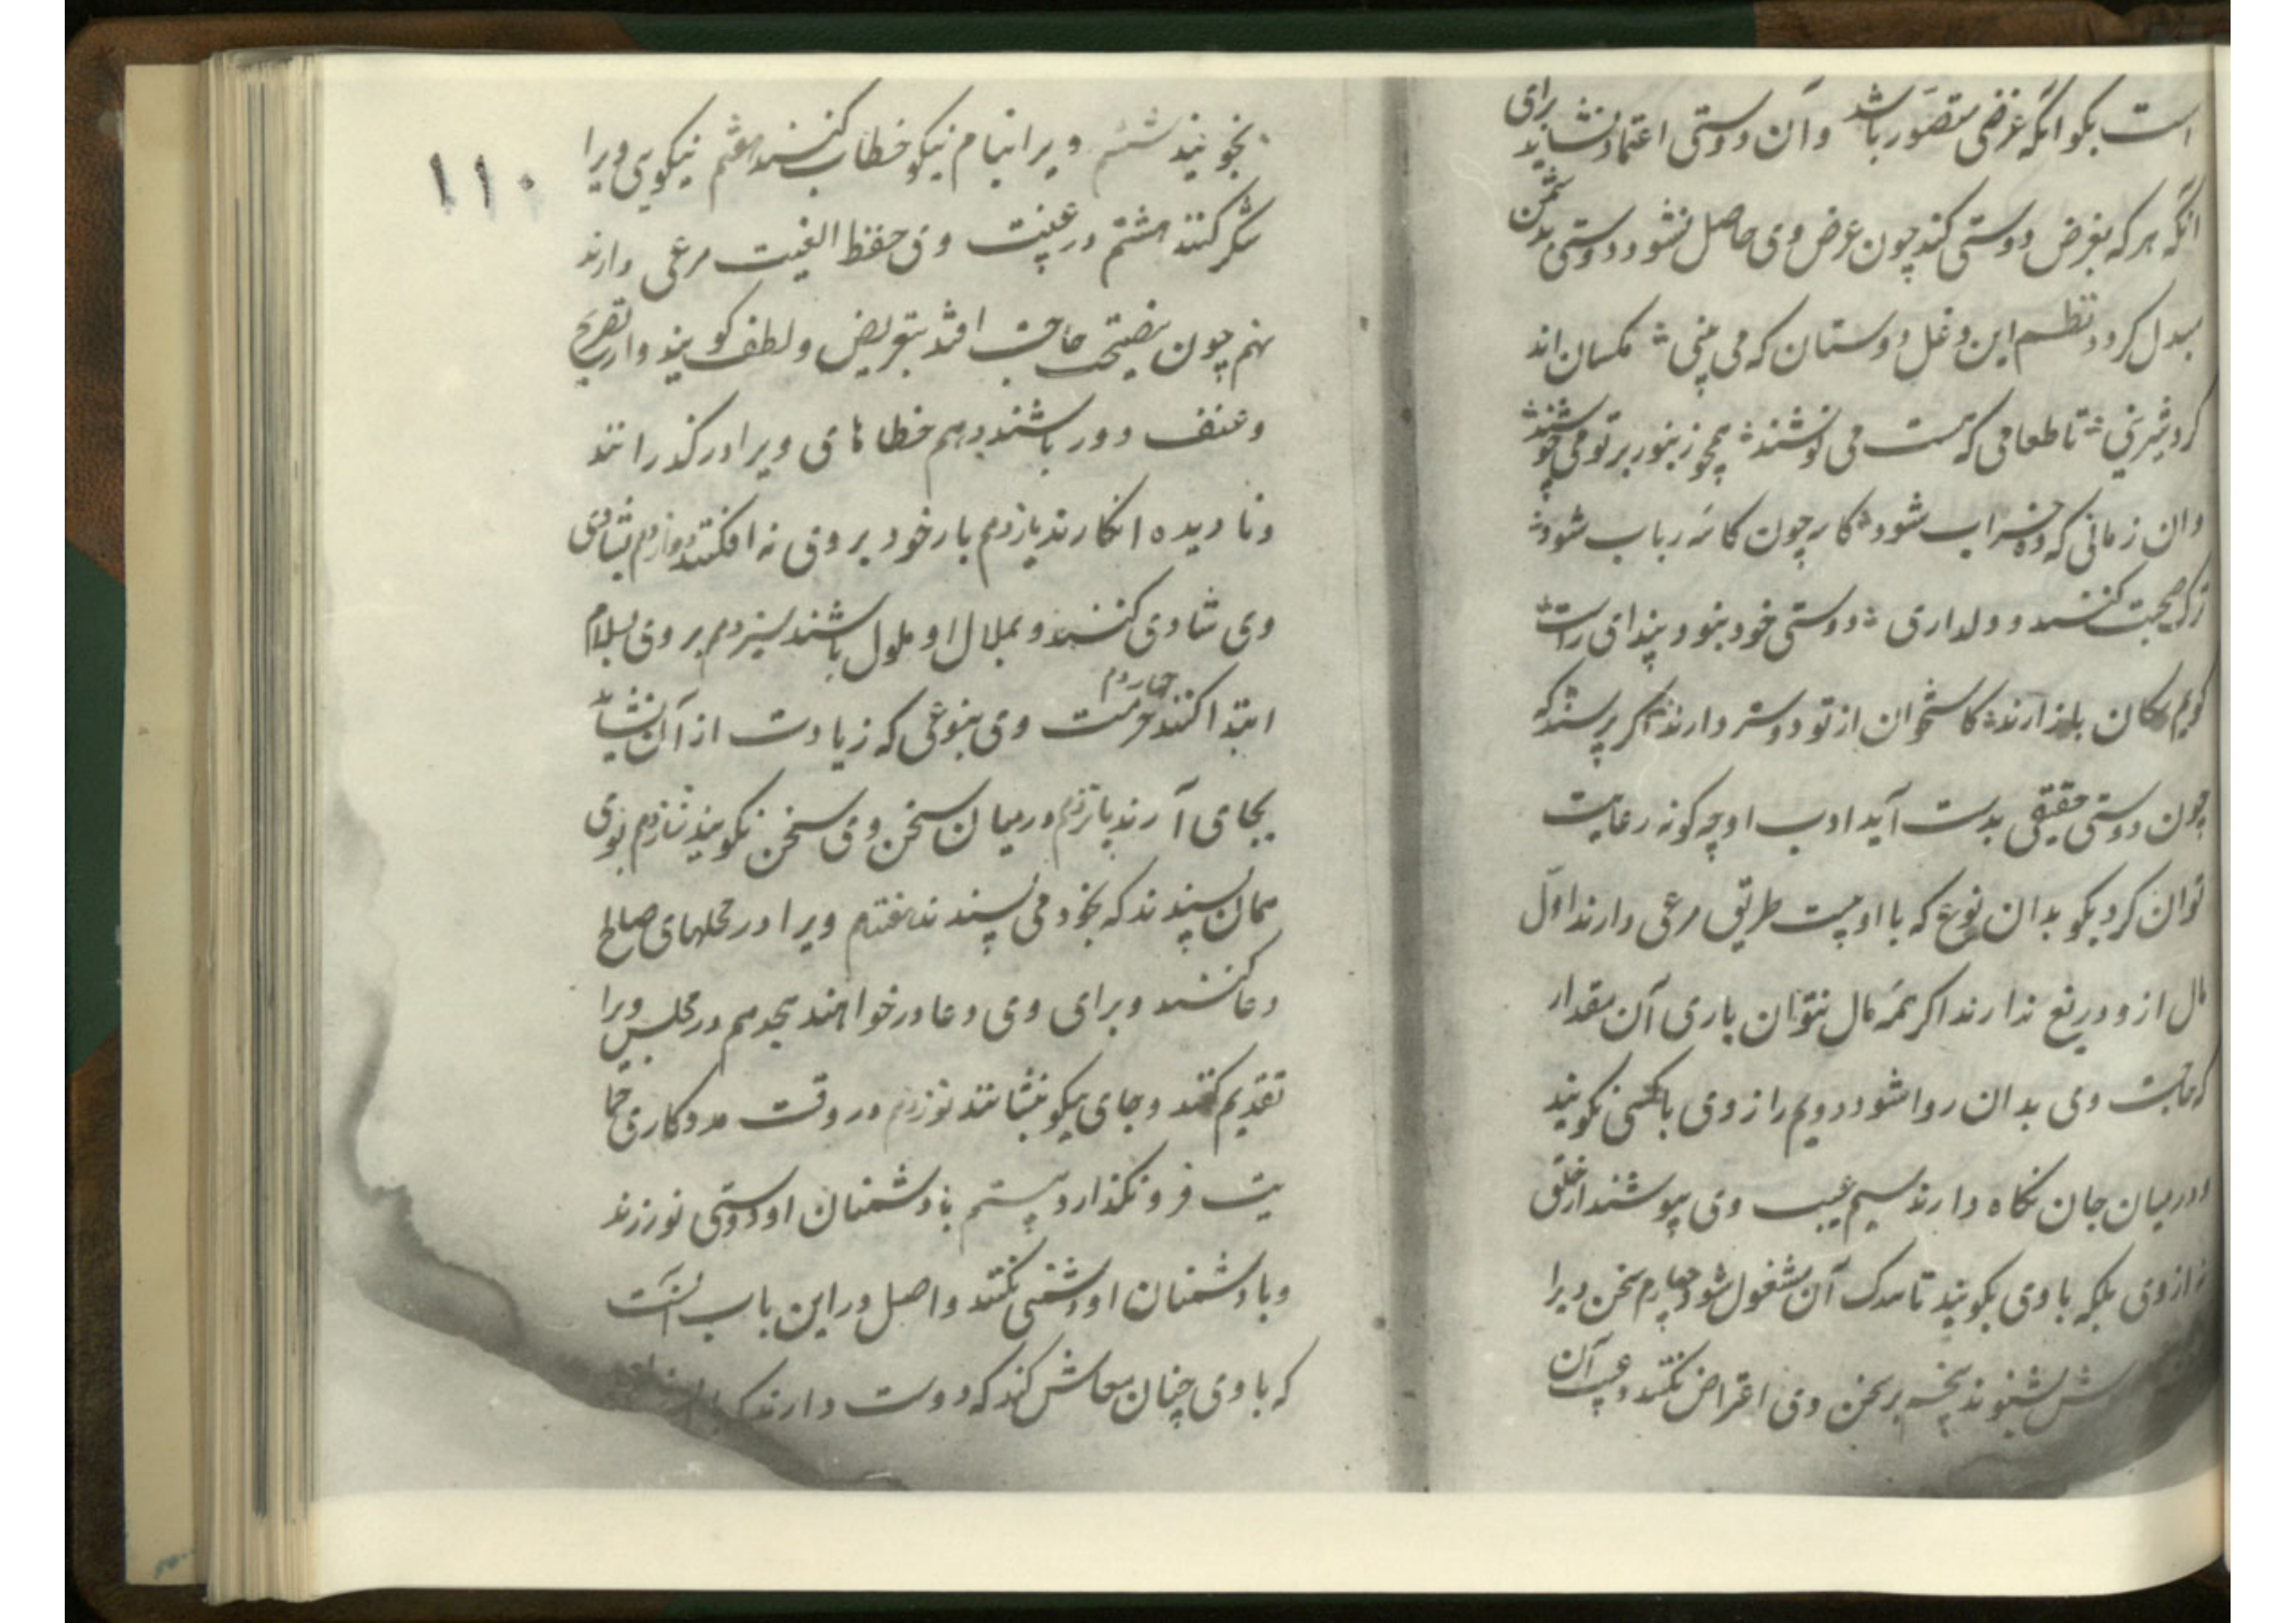 است بگو انکه غرضی متصور باشد و آن دوستی اعتماد نشاید برای
انکه هر که بغرض دوستی کند چون غرض وی حاصل نشود دوستی بدشمنی
مبدل کردد نظم این دغل دوستان که می بینی مکسان اند
کرد شیرینی تا طعامی که هست می نوشند همچو زنبور بر تو می جوشند
وان زمانی که ده خراب شود کار چون کاسه رباب شود
ترک صحبت کنند و دلداری دوستی خود نبود پنداری راست
کویم سکان بازارند کاستخوان از تو دوستر دارند اکر پرسند که
چون دوستی حقیقی بدست آید ادب او چه کونه رعایت
توان کرد بکو بدان نوع که با او بیست طریق مرعی دارند اول
مال ازو دریغ ندارند اکر همه مال نتوان باری آن مقدار
که حاجت وی بدان روا شود دویم راز وی با کسی نکویند
و در میان جان نکاه دارند سیم عیب وی بپوشند از خلق
نه از وی بلکه با وی بکویند تا بتدارک آن مشغول شود چهارم سخن ویرا
بشنوند پنجم بر سخن وی اعتراض نکنند و عیب آن
۱۱۰
نجویند ششم ویرا بنام نیکو خطاب کنند هفتم نیکویی ویرا
شکر کنند هشتم در غیبت وی حفظ الغیب مرعی دارند
نهم چون بنصیحت حاجت افتد بتعریض و لطف کویند و از تصریح
و عنف دور باشند دهم خطاهای ویرا در کذرانند
و نادیده انکارند یازدهم بار خود بر وی نه افکنند دوازدهم بشادی
وی شادی کنند و بملال او ملول باشند سیزدهم بر وی بسلام
ابتدا کنند چهاردهم حرمت وی بنوعی که زیادت از آن نشاید
بجای آرند پانزدهم در میان سخن وی سخن نکویند شانزدهم بوی
همان پسندند که بخود می پسندند هفتدهم ویرا در محلهای صالح
دعا کنند و برای وی دعا در خواهند هجدهم در مجلس ویرا
تقدیم کنند و جای نیکو بنشانند نوزدهم در وقت مددکاری حما
یت فرو نکذارد بیستم با دشمنان او دوستی نورزند
و با دوستان او دشمنی نکنند و اصل در این باب آنست
که با وی چنان معاش کند که دوست دارند که